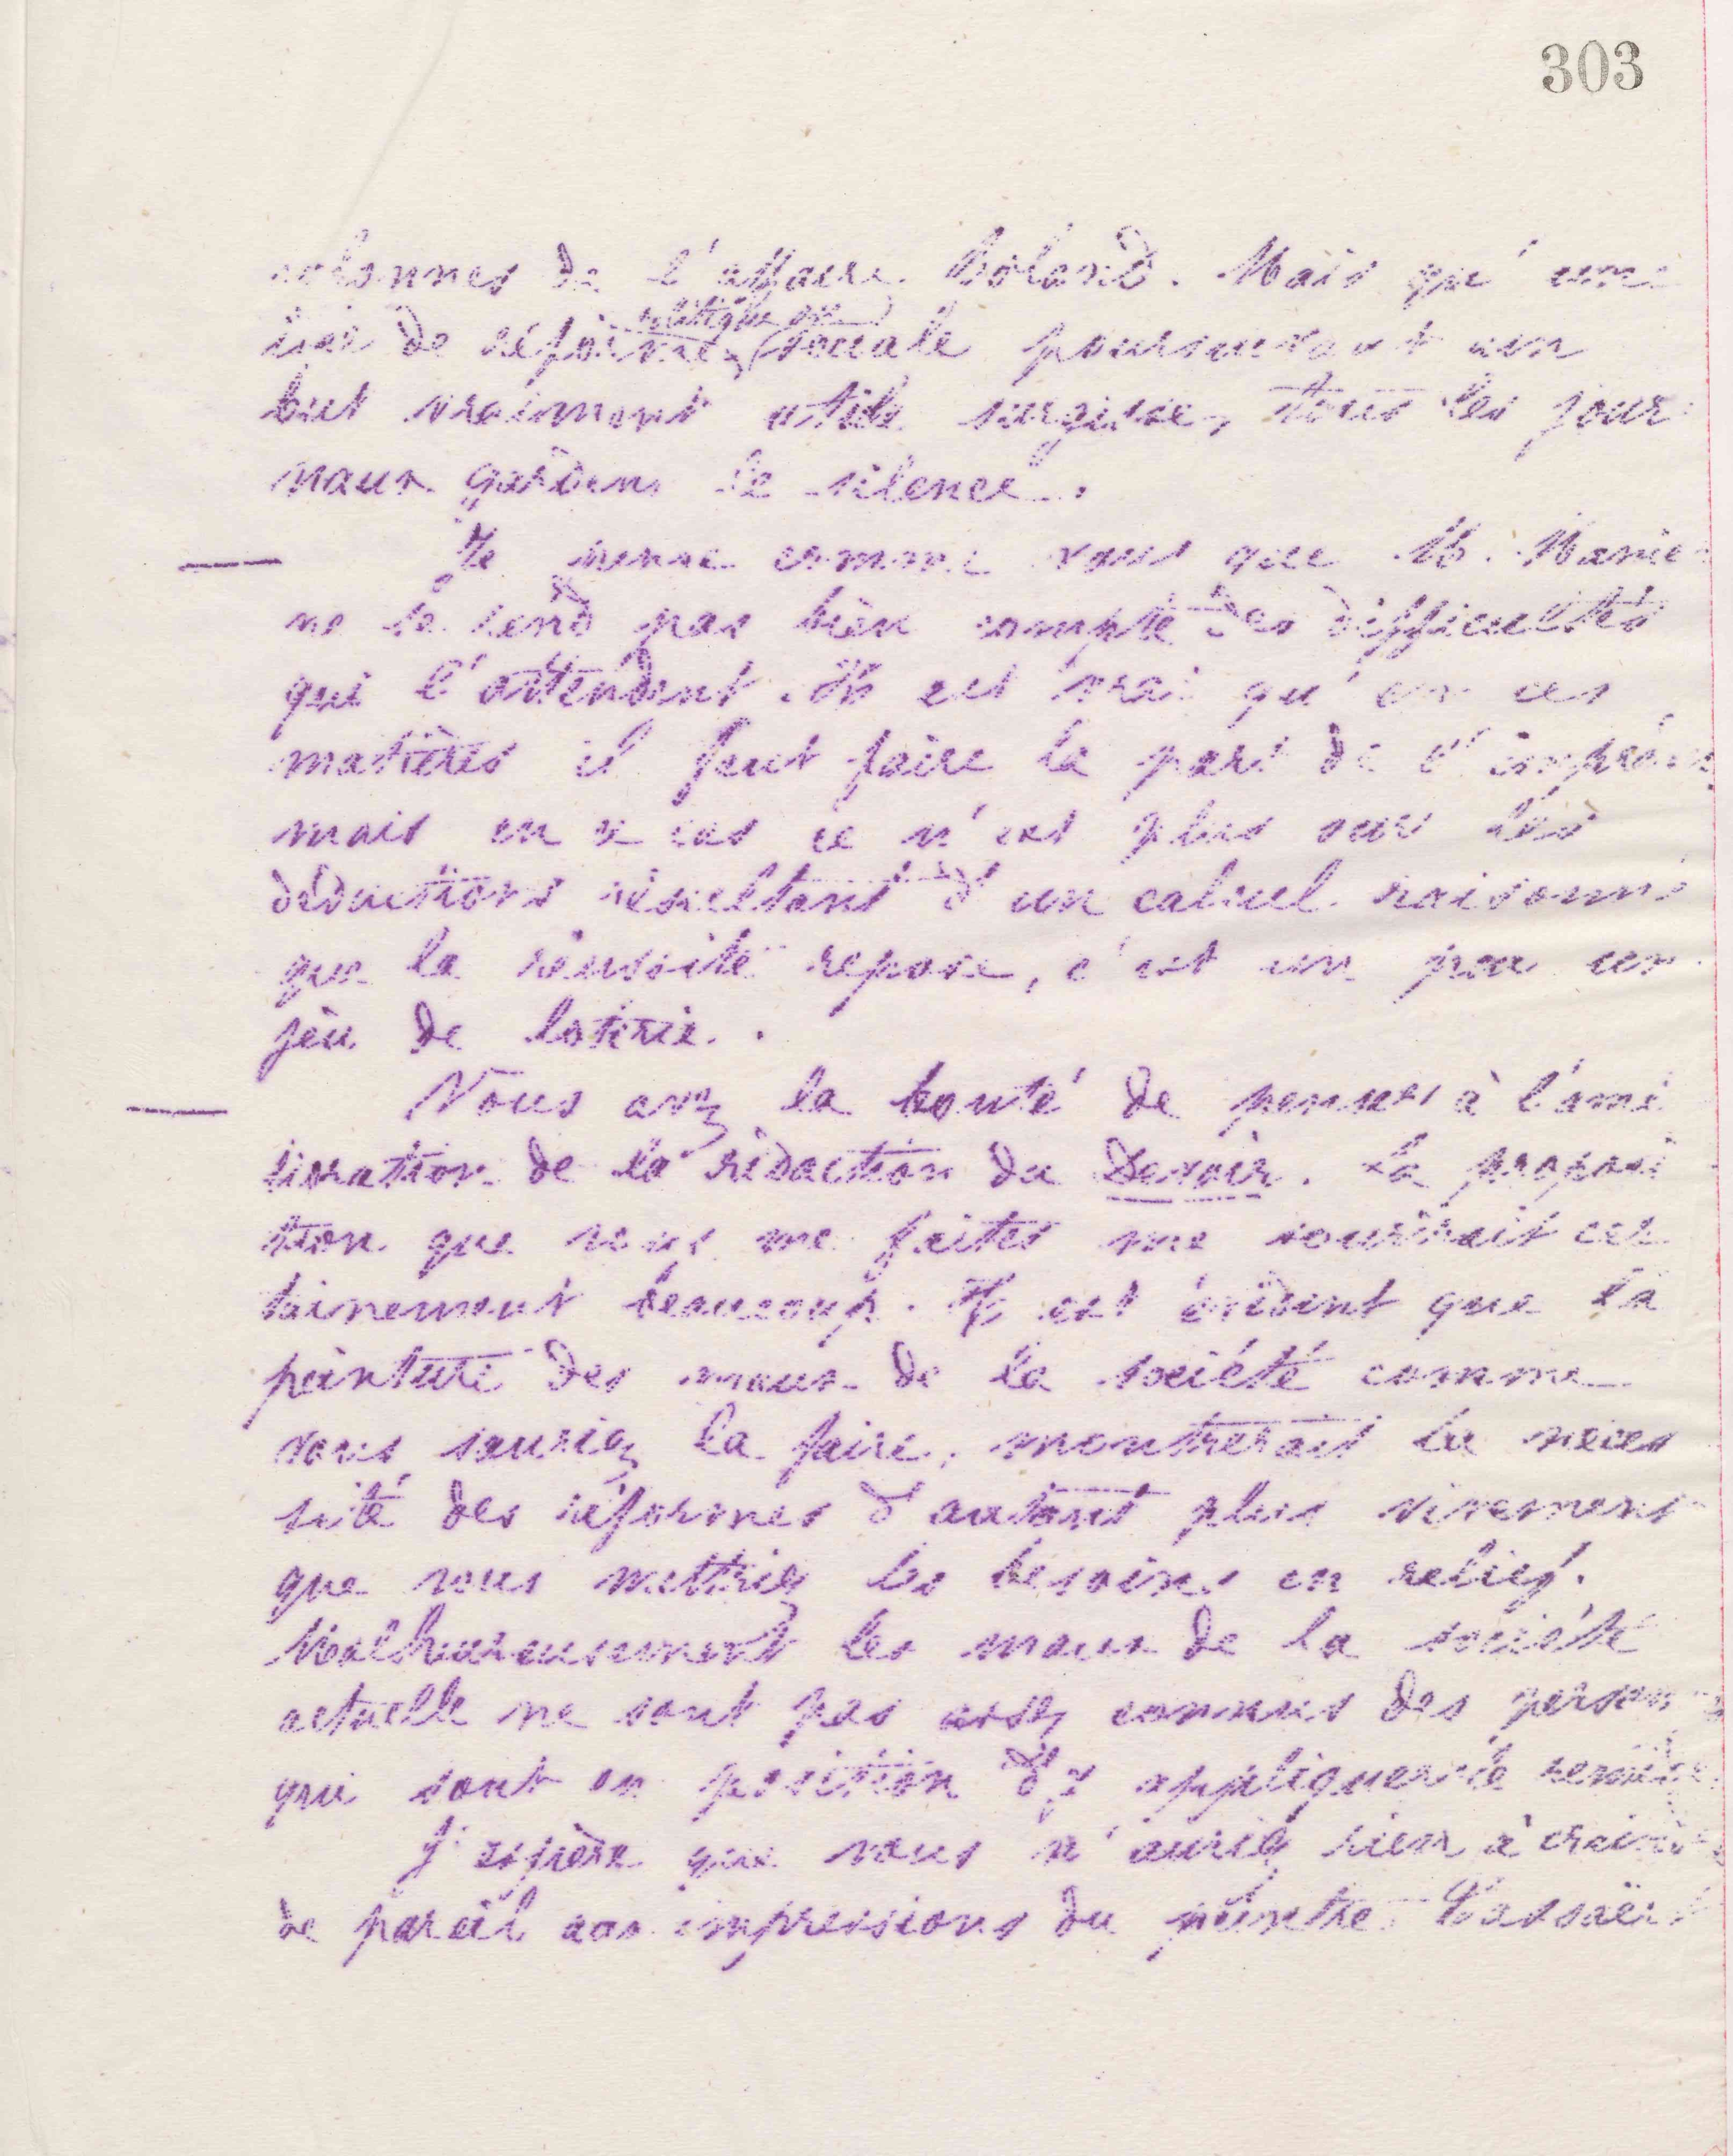 303
colonnes de l'affaire Boland. Mais qu'une
idée de réforme politique ou sociale poursuivant un
but vraiment utile surgisse, tous les jour
naux gardent le silence.
— Je pense comme vous que M.
ne se rend pas bien compte des difficultés
qui l'attendent. Il est vrai qu'en ces
matières il faut faire la part de l'imprévu
mais en ce cas ce n'est plus sur les
déductions résultant d'un calcul raisonné
que la réussite repose, c'est un peu un
jeu de loterie.
— Vous avez la bonté de penser à l'amé
lioration de la rédaction du Devoir. La proposi
tion que vous me faites me sourirait cer
tainement beaucoup. Il est évident que la
peinture des maux de la société comme
vous sauriez la faire, montrerait la néces
sité des réformes d'autant plus vivement
que vous mettriez les besoins en relief.
Malheureusement les maux de la société
actuelle ne sont pas assez connus des personnes
qui sont en position d'y appliquer le remède.
J'espère que vous n'auriez rien à craindre
de pareil aux impressions du peintre